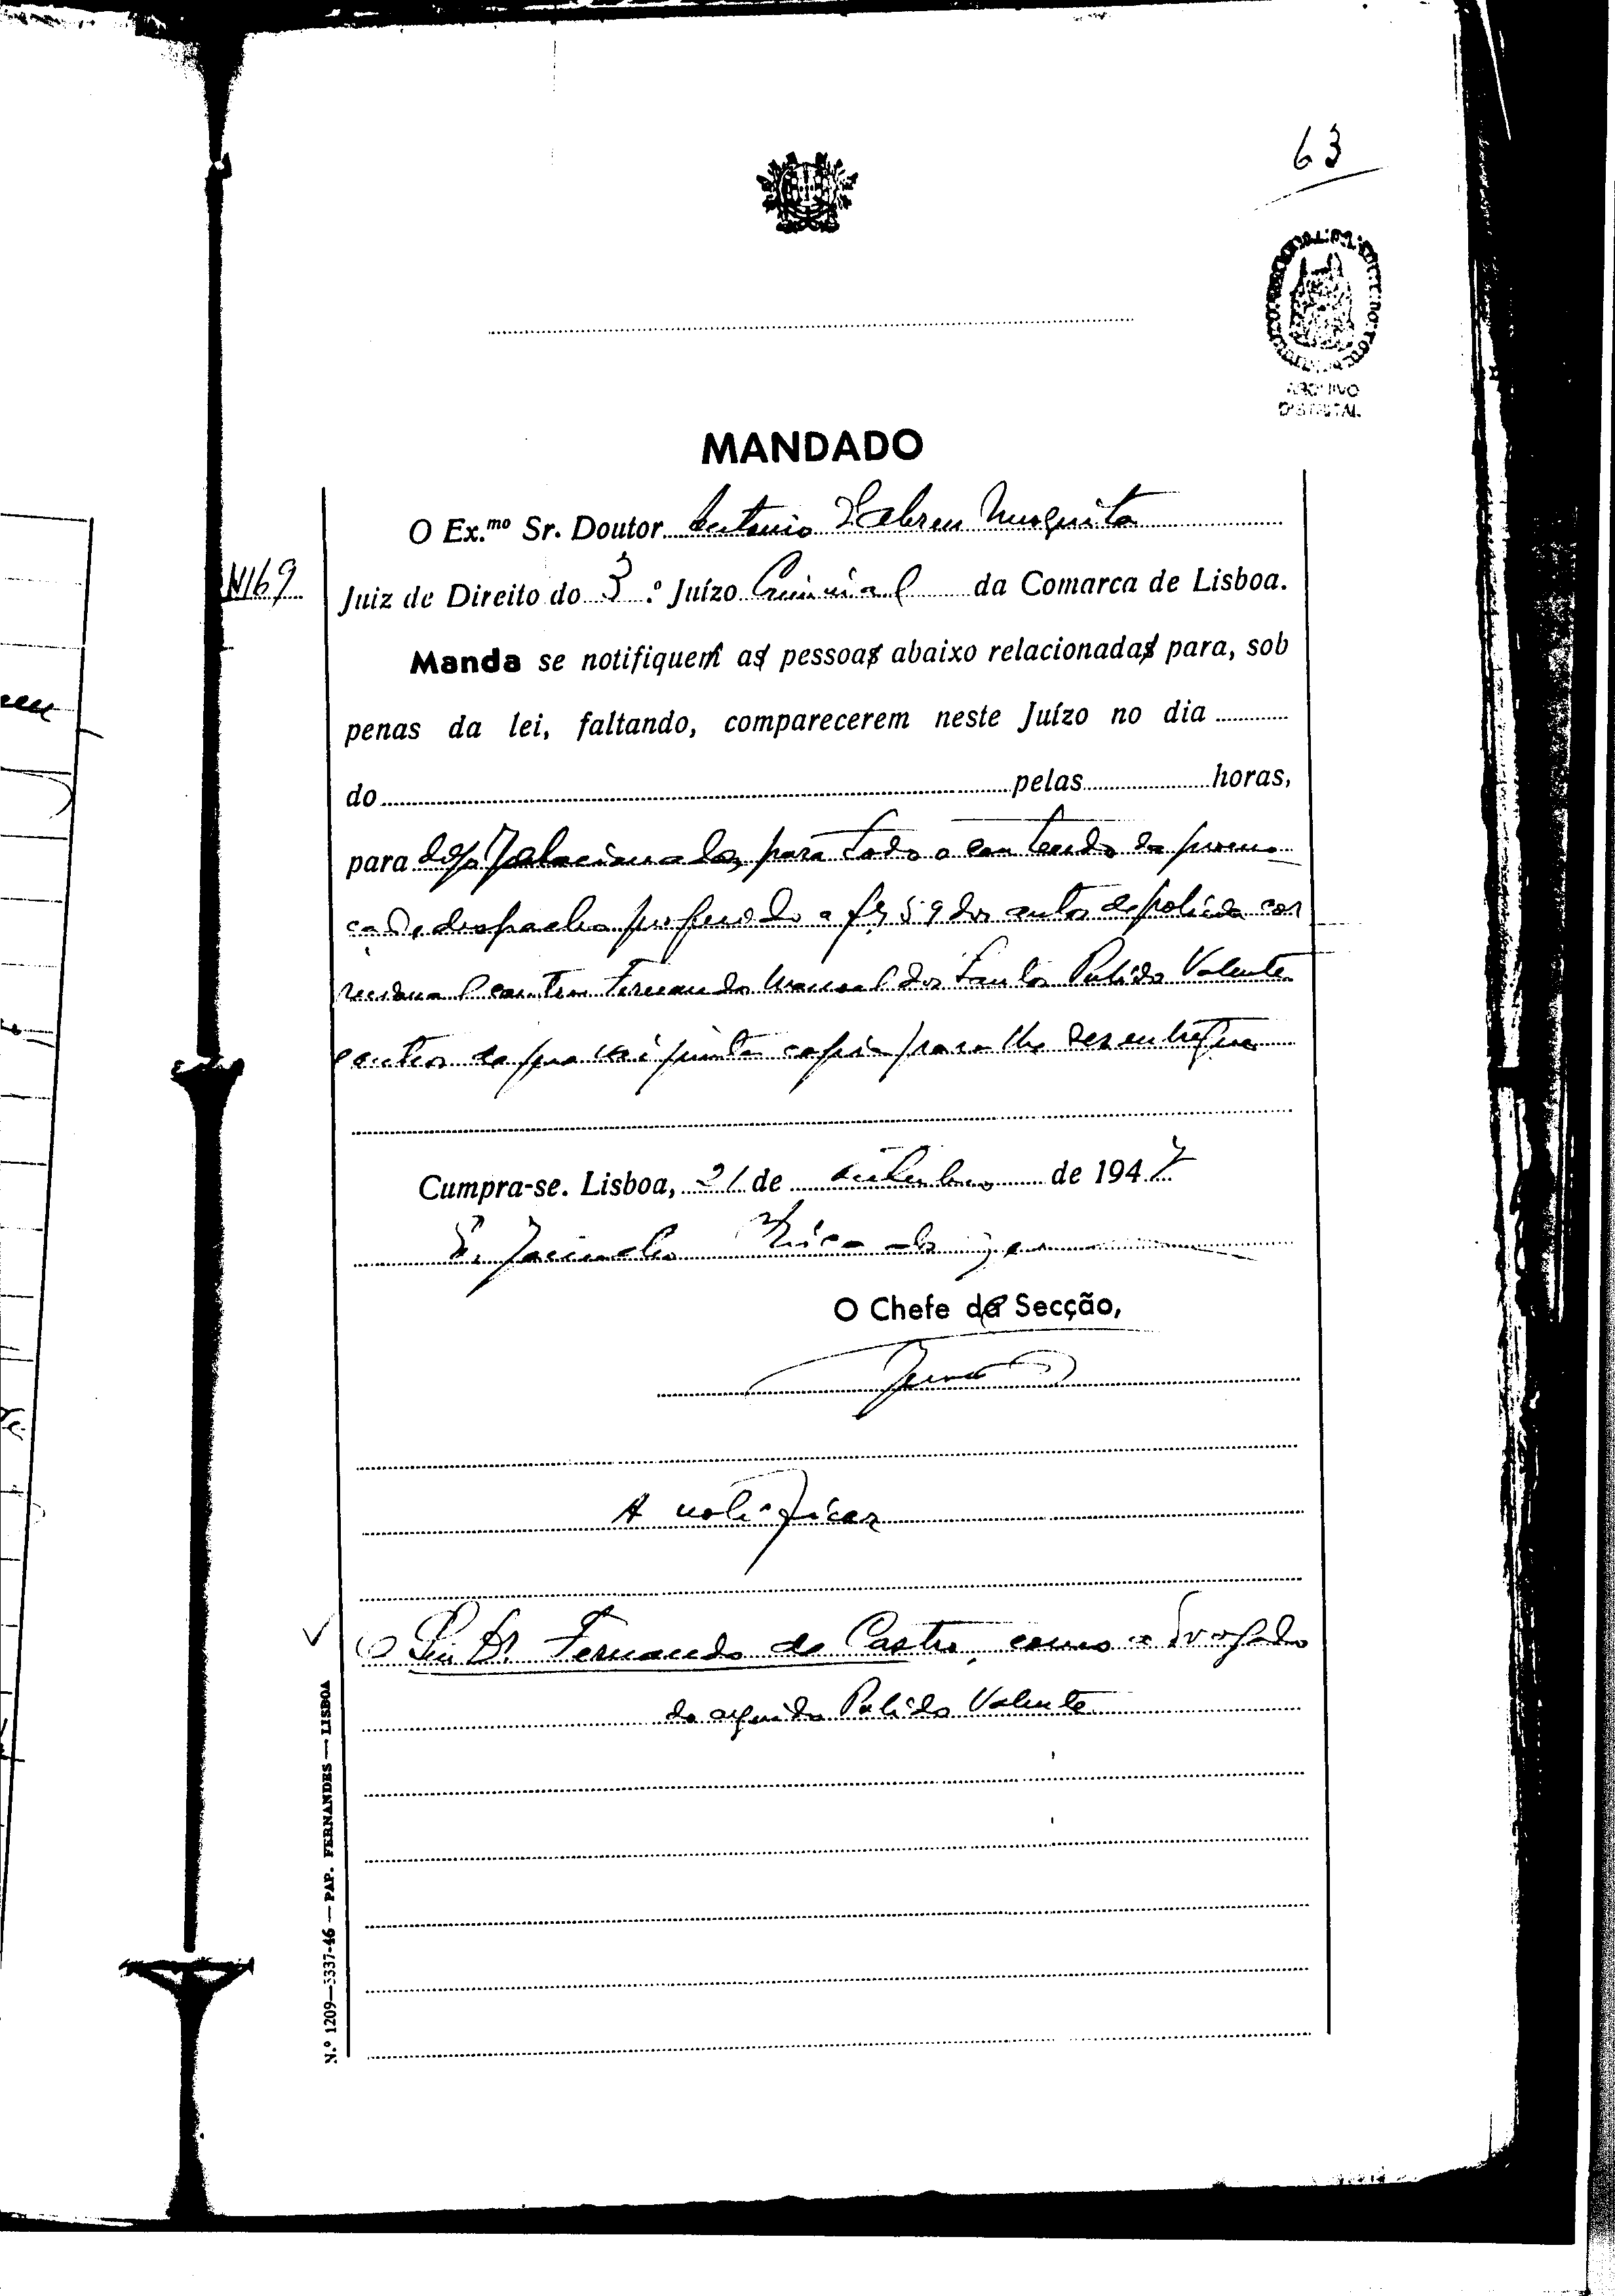 63
ARQUIVO
DISTRITAL
MANDADO
O Ex.mo Sr. Doutor Antonio d'Abreu Mesquita
N169
Juiz de Direito do 3.º Juízo Criminal da Comarca de Lisboa.
Manda se notifiquem as pessoas abaixo relacionadas para, sob
penas da lei, faltando, comparecerem neste Juízo no dia
do pelas horas,
para todo o conteudo da promo
ção e despacho proferido a fls 59 dos autos de policia cor
recional contra Fernando Manuel dos Santos Pulido Valente
e outros da qual vai junta copia para lhe ser entregue
Cumpra-se. Lisboa, 21 de outubro de 1947
O Chefe da Secção,
A notificar
O Sr. Dr. Fernando de Castro, como advogado
do arguido Pulido Valente
N.º 1209—3337-46 — PAP. FERNANDES — LISBOA